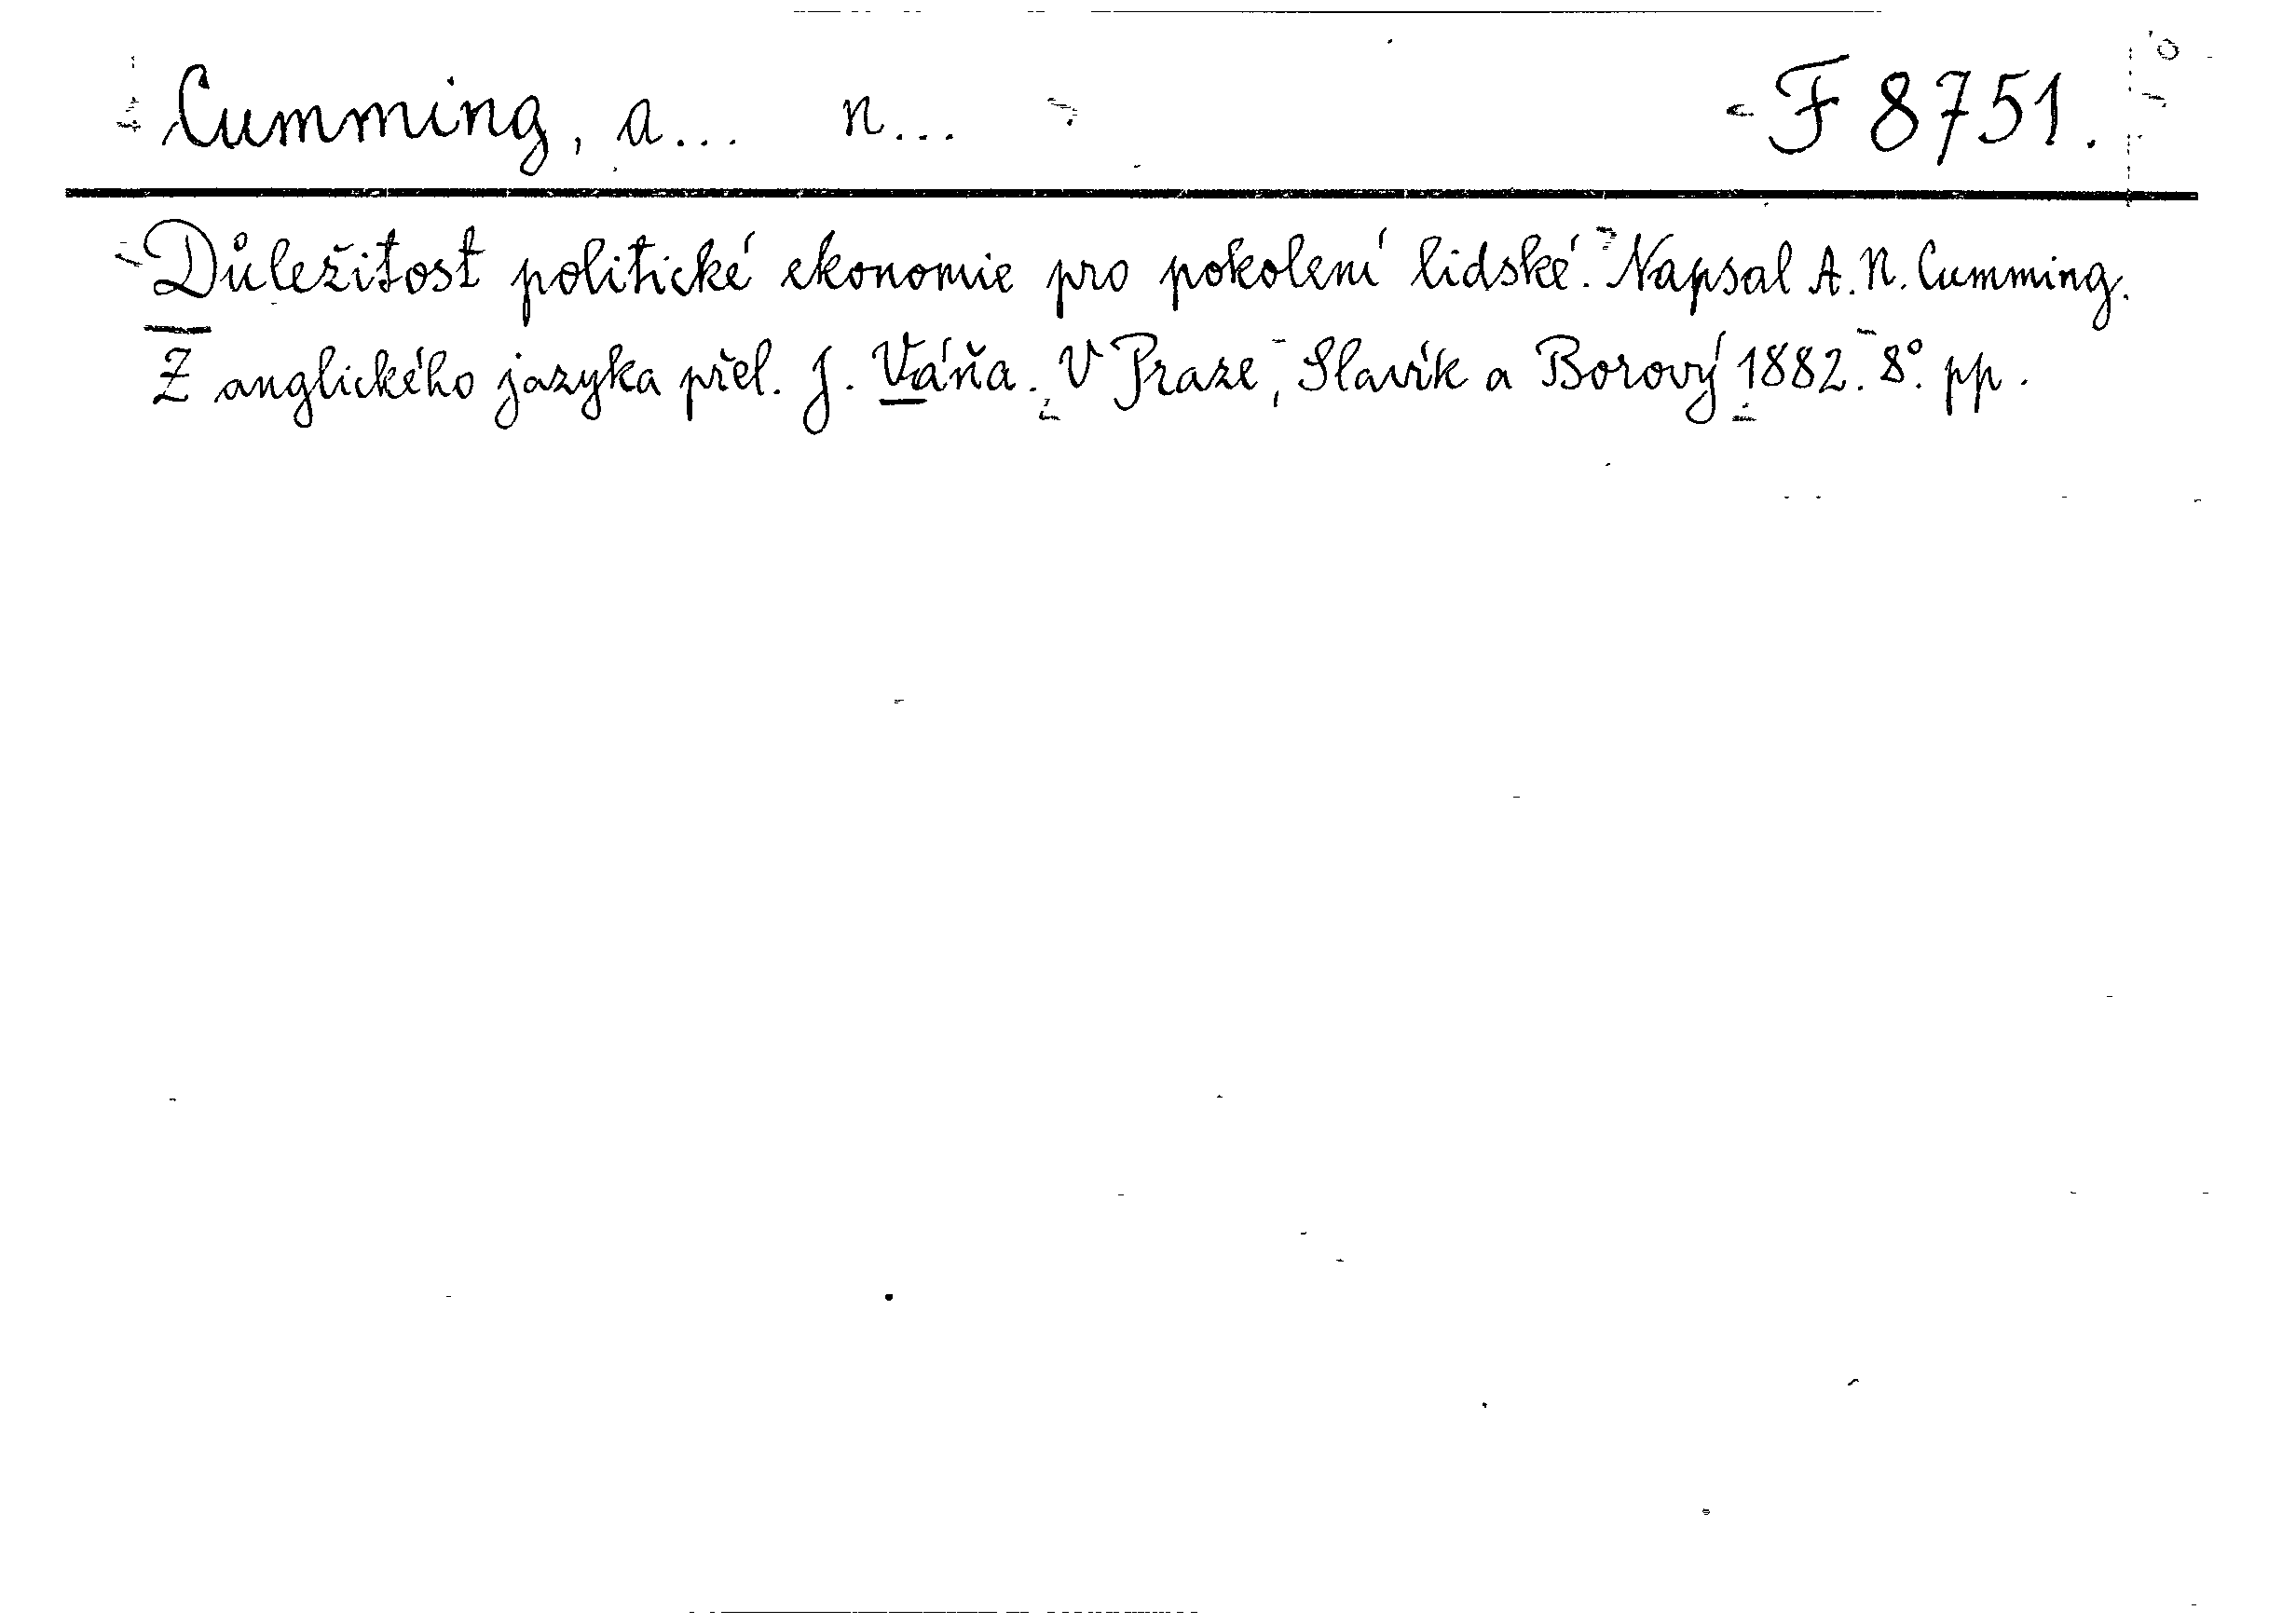 Cumming, a... n... F 8751.
Důležitost politické ekonomie pro pokolení lidské. Napsal A. N. Cumming.
Z anglického jazyka přel. J. Váňa. V Praze, Slavík a Borový 1882. 8°. pp.